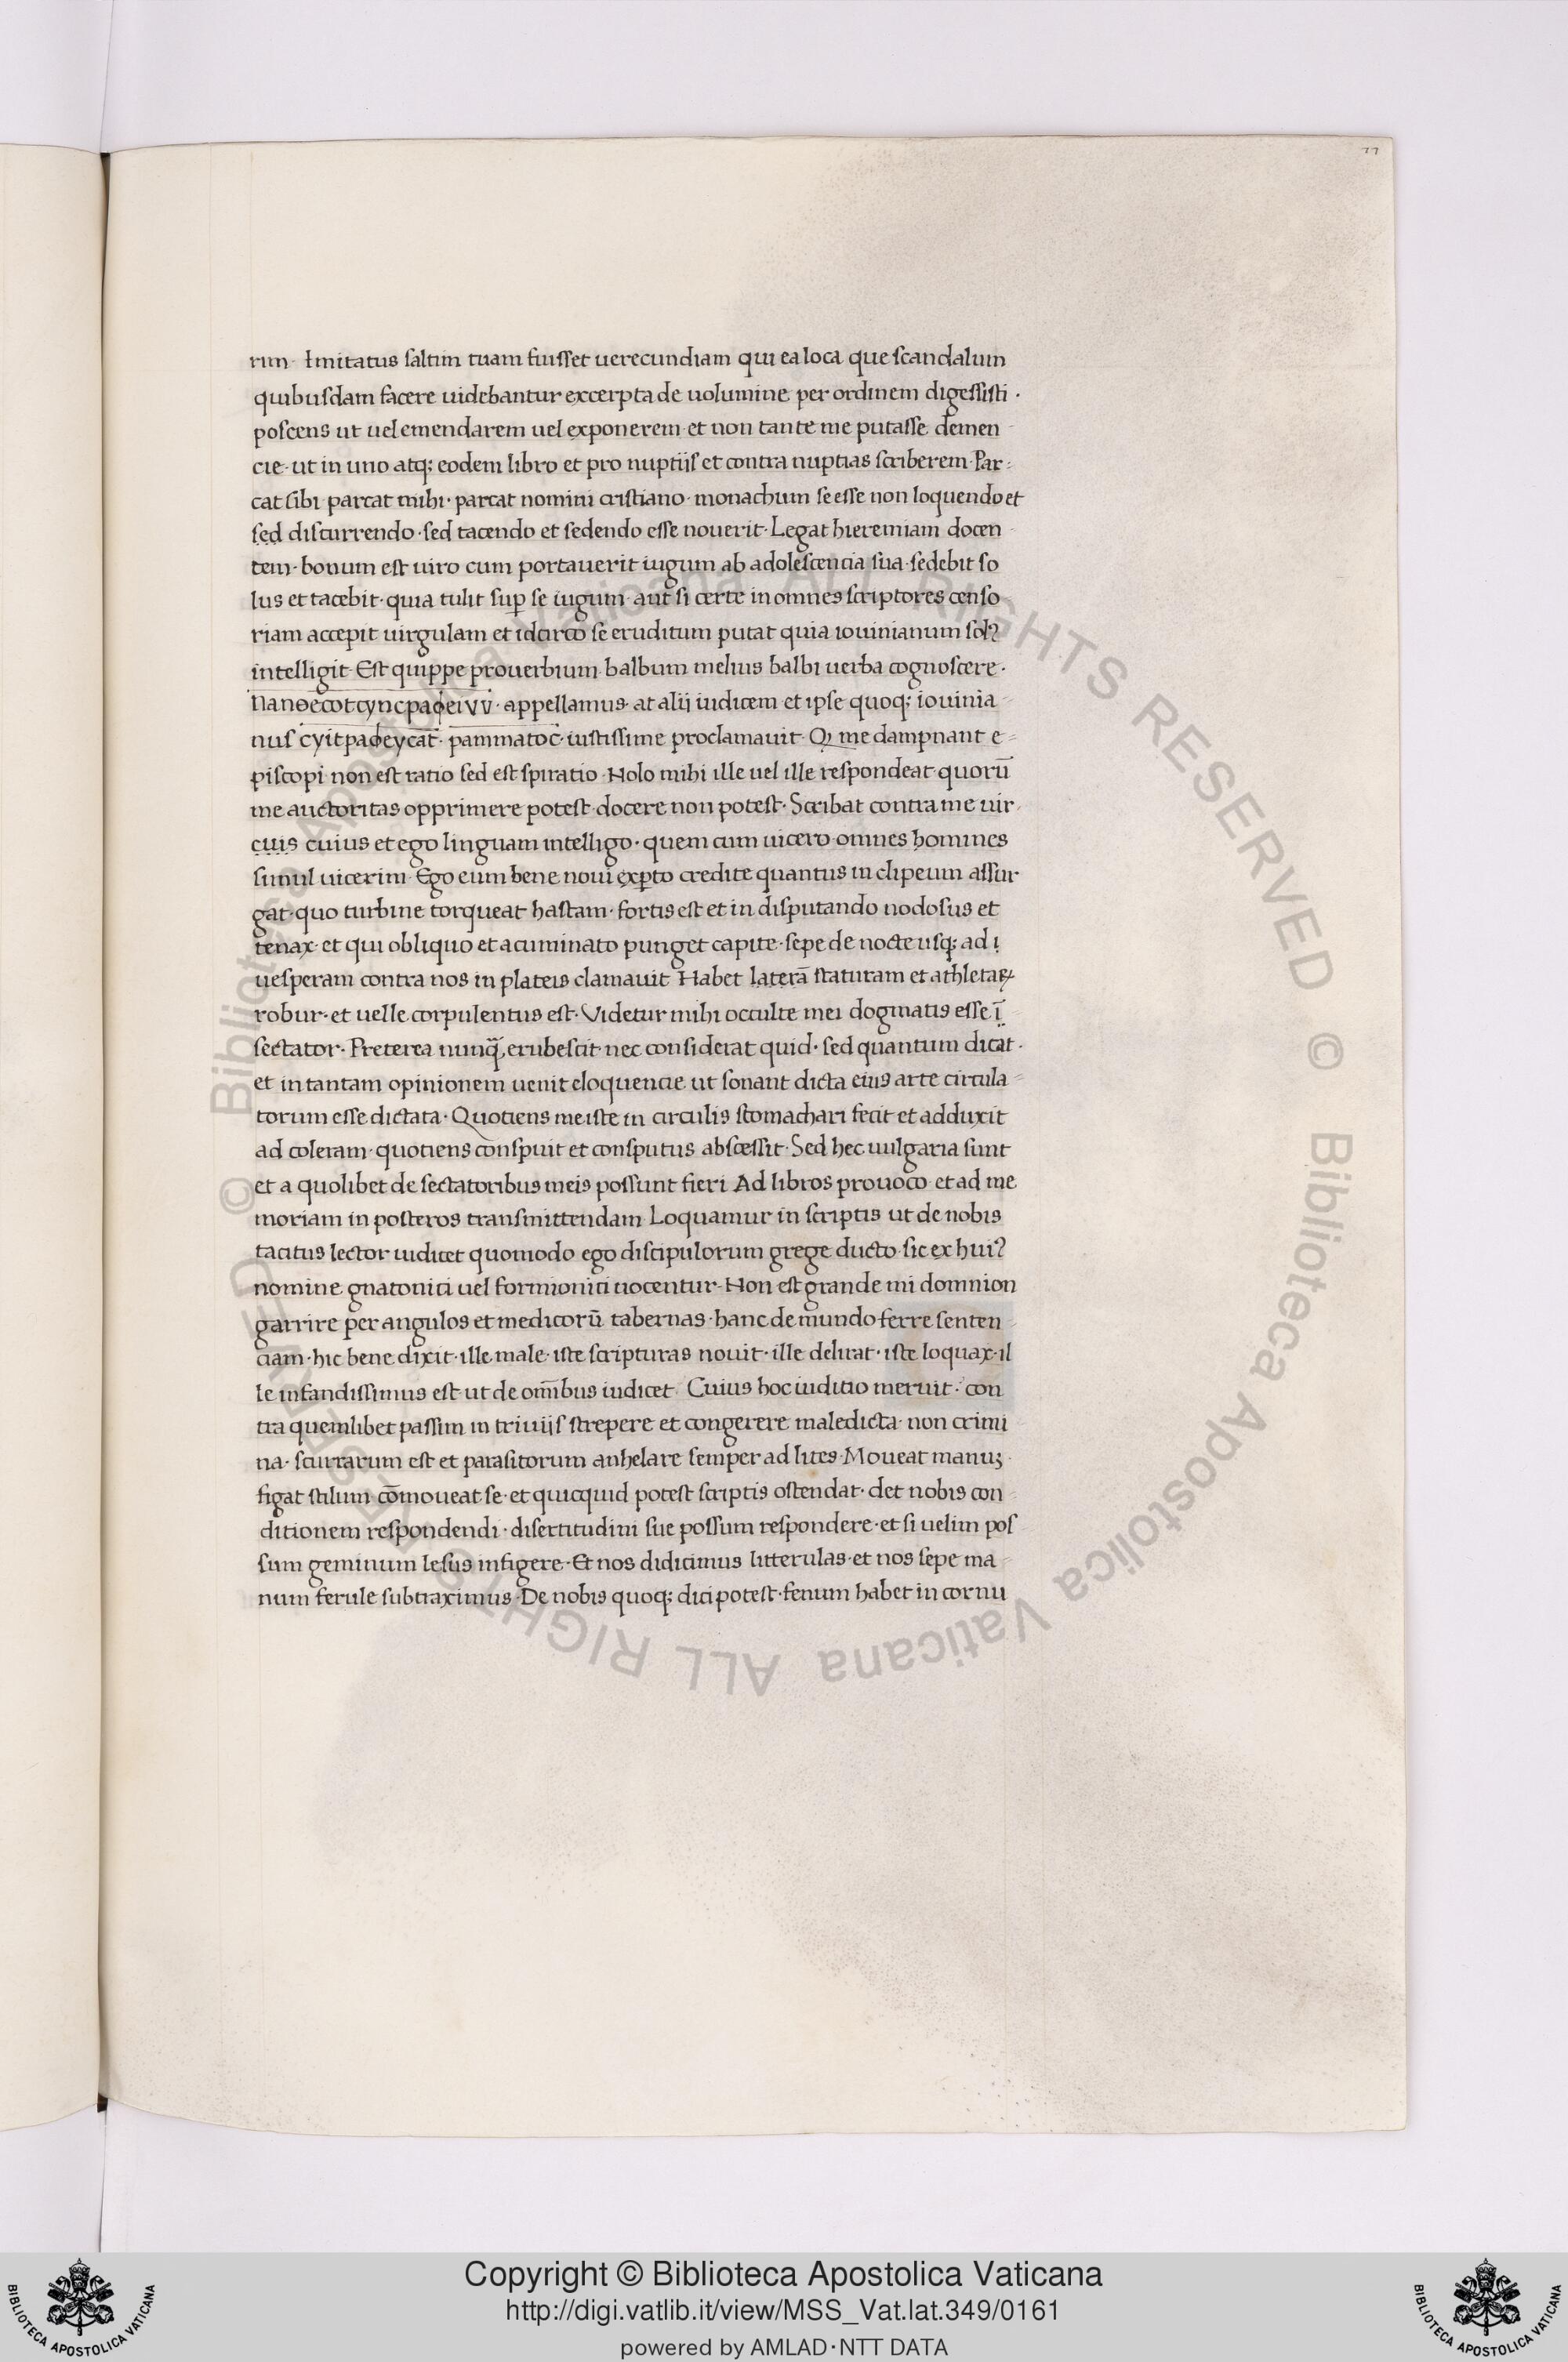 77
rim · Imitatus saltim tuam fuisset uerecundiam qui ea loca que scandalum
quibusdam facere uidebantur excerpta de uolumine per ordinem digessisti ·
poscens ut uel emendarem uel exponerem · et non tante me putasse demen-
cie · ut in uno atq; eodem libro et pro nuptijs et contra nuptias scriberem · Par-
cat sibi · parcat mihi · parcat nomini cristiano · monachum se esse non loquendo et
sed discurrendo · sed tacendo et sedendo esse nouerit · Legat hieremiam docen-
tem · bonum est uiro cum portauerit iugum ab adolescencia sua · sedebit so
lus et tacebit · quia tulit suꝑ se iugum · aut si certe in omnes scriptores censo-
riam accepit uirgulam et idcirco se eruditum putat quia iouinianum sol
intelligit · Est quippe prouerbium · balbum melius balbi uerba cognoscere ·
appellamus · at alij iudicem · et ipse quoq; iouinia-
nus cyitpaφeycat · pammatoc · iustissime proclamauit · Q me dampnant e-
piscopi · non est ratio sed est spiratio · Nolo mihi ille uel ille respondeat · quorū
me auctoritas opprimere potest · docere non potest · Scribat contra me uir
cuis cuius et ego linguam intelligo · quem cum uicero · omnes homines
simul uicerim · Ego eum bene noui exꝑto credite quantus in clipeum assur-
gat · quo turbine torqueat hastam · fortis est et in disputando nodosus et
tenax · et qui obliquo et acuminato punget capite · sepe de nocte usq; ad i
uesperam contra nos in plateis clamauit · Habet laterā staturam et athletaꝝ
robur · et uelle corpulentus est · Videtur mihi occulte mei dogmatis esse ī
sectator · Preterea nunq̄ erubescit · nec considerat quid · sed quantum dicat ·
et in tantam opinionem uenit eloquencie ut sonant dicta eius arte circula-
torum esse dictata · Quotiens me iste in circulis stomachari fecit et adduxit
ad coleram · quotiens conspuit et consputus abscessit · Sed hec uulgaria sunt
et a quolibet de sectatoribus meis possunt fieri · Ad libros prouoco · et ad me
moriam in posteros transmittendam · Loquamur in scriptis ut de nobis
tacitus lector iudicet quomodo ego discipulorum grege ducto · sic ex hui
nomine gnatonici uel formionici uocentur · Non est grande mi domnion
garrire per angulos et medicorū tabernas · hanc de mundo ferre senten-
ciam · hic bene dixit · ille male · iste scripturas nouit · ille delirat · iste loquax · il
le infandissimus est ut de om̄ibus iudicet · Cuius hoc iuditio meruit · con
tra quemlibet passim in triuijs strepere et congerere maledicta · non crimi
na · scurrarum est et parasitorum anhelare semper ad lites · Moueat manuꝫ ·
figat stilum · cōmoueat se · et quicquid potest scriptis ostendat · det nobis con-
ditionem respondendi · disertitudini sue possum respondere · et si uelim pos
sum geminum lesus infigere · Et nos didicimus litterulas · et nos sepe ma-
num ferule subtraximus · De nobis quoq; dici potest · fenum habet in cornu
© Biblioteca Apostolica Vaticana ALL RIGHTS RESERVED
© Biblioteca Apostolica Vaticana ALL RIGHTS RESERVED
Copyright © Biblioteca Apostolica Vaticana
http://digi.vatlib.it/view/MSS_Vat.lat.349/0161
powered by AMLAD · NTT DATA
BIBLIOTECA APOSTOLICA VATICANA
BIBLIOTECA APOSTOLICA VATICANA